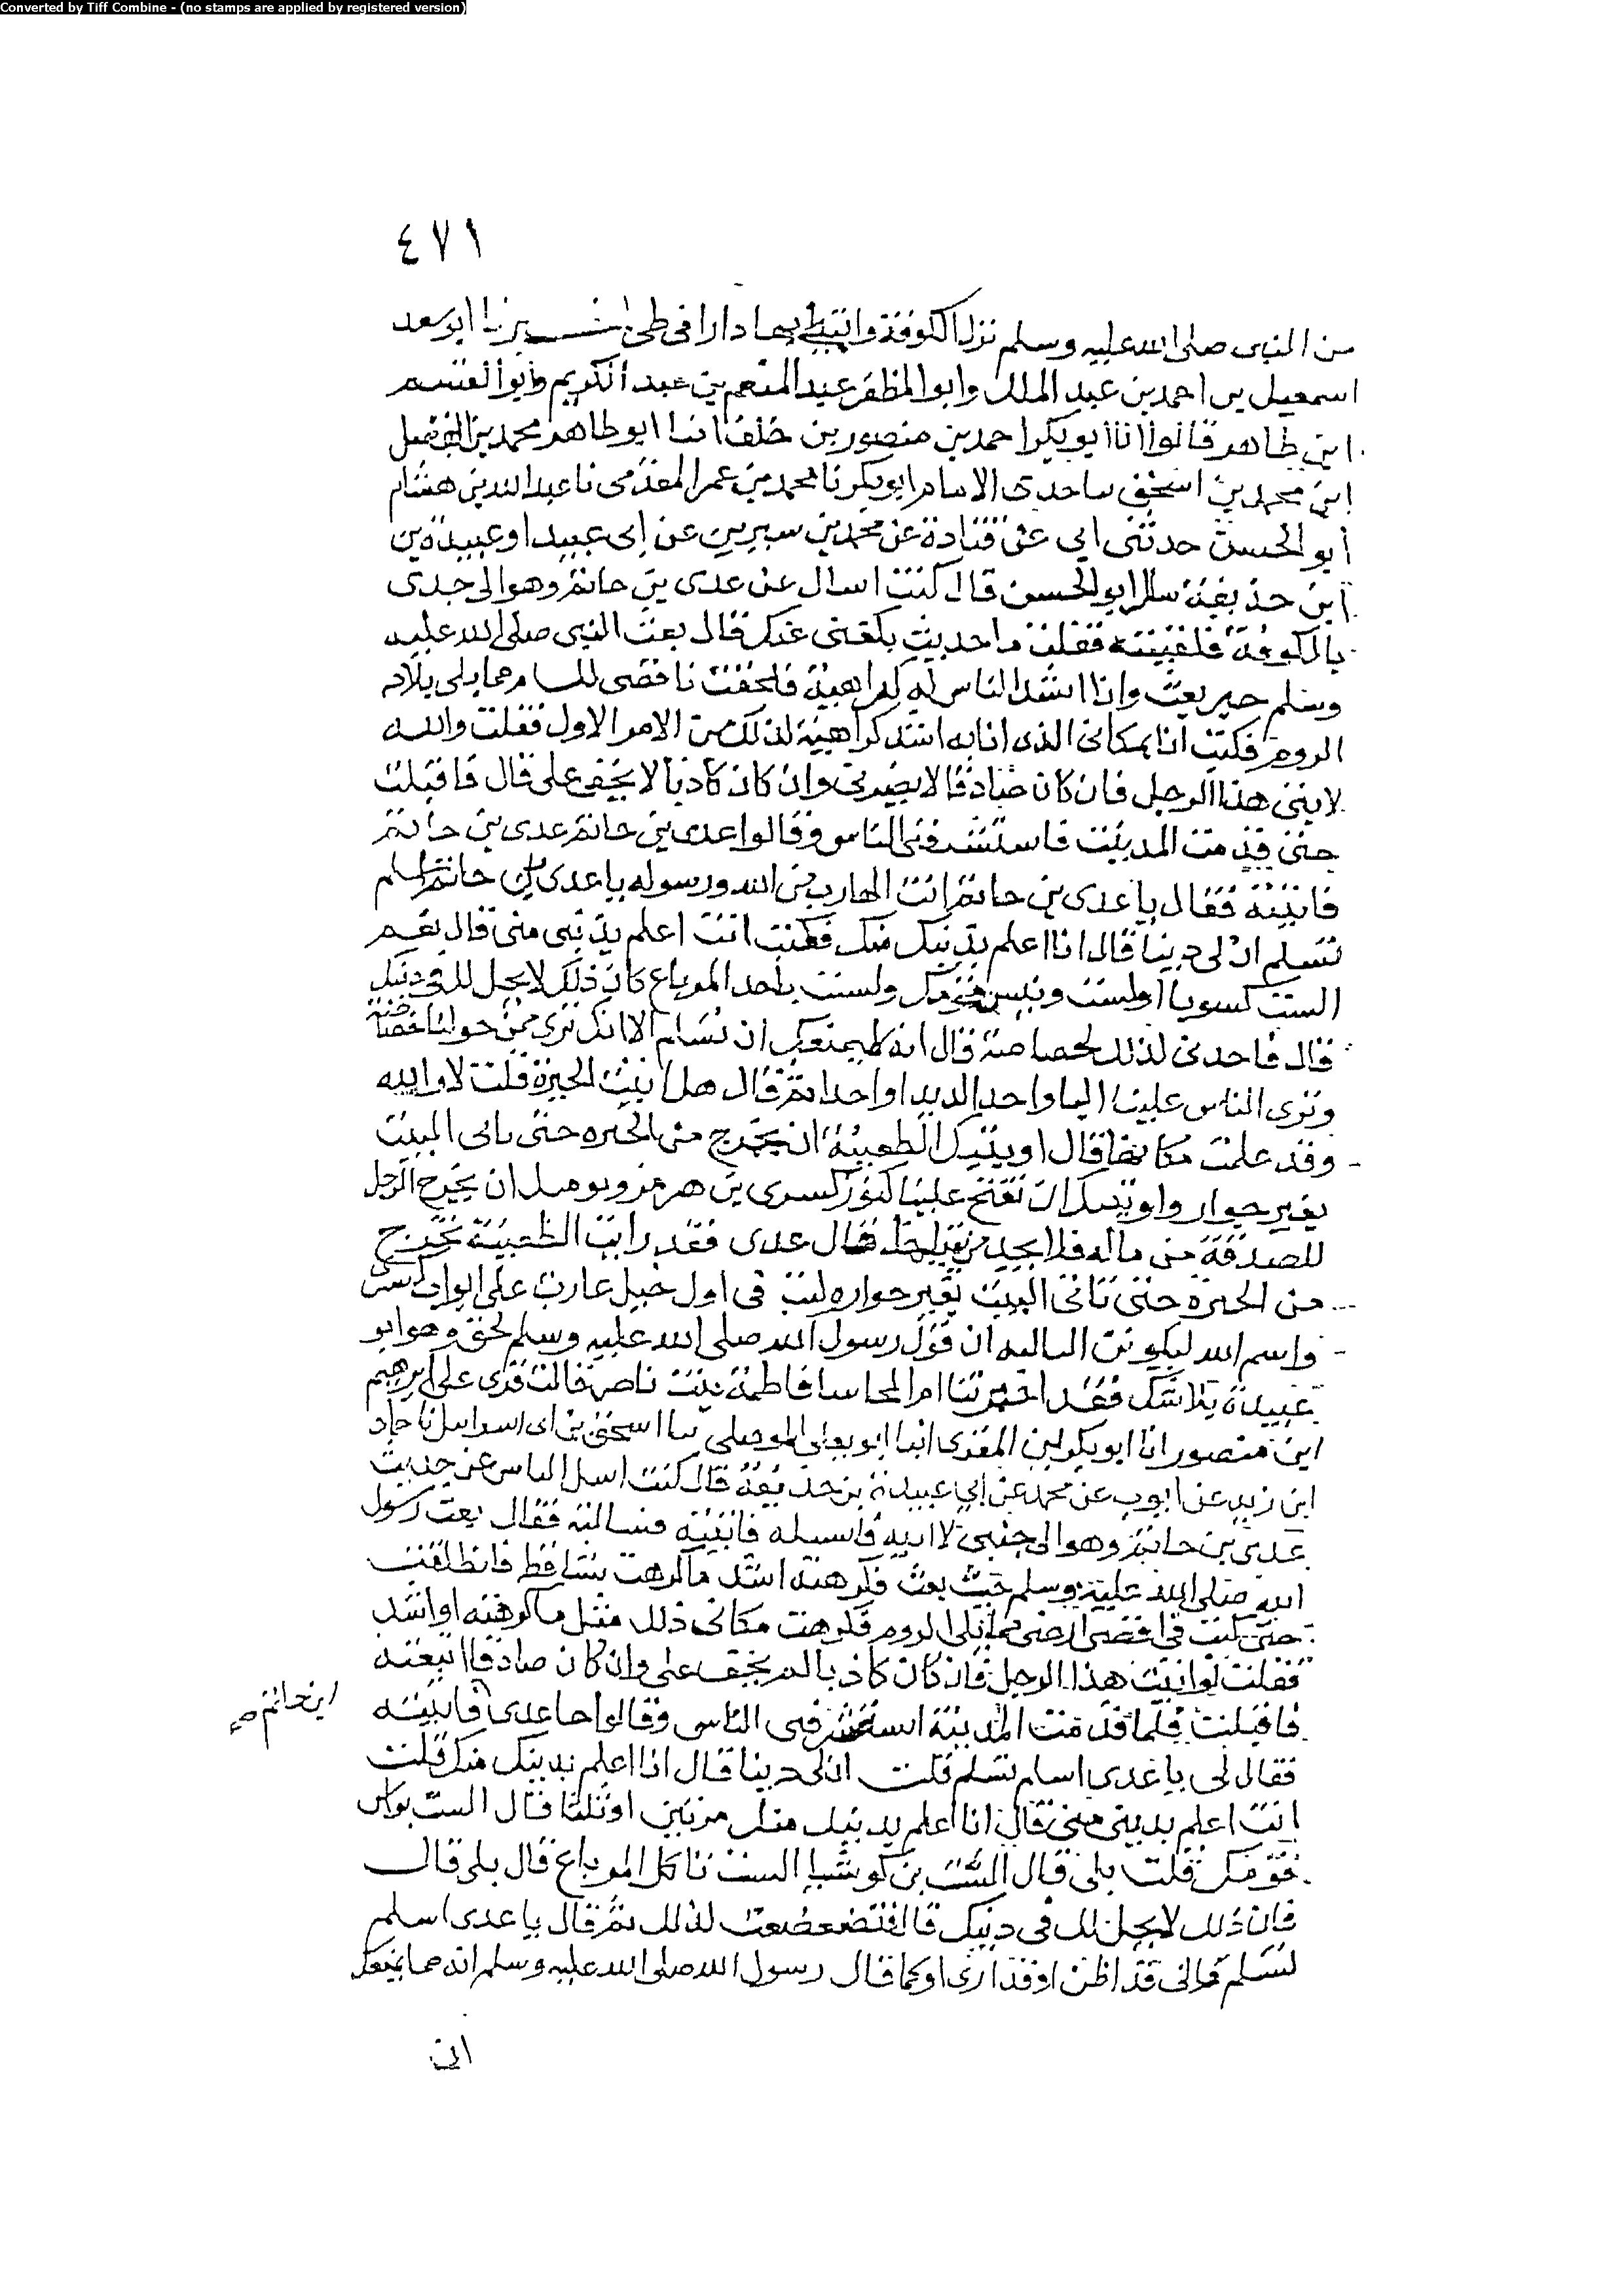 Converted by Tiff Combine - (no stamps are applied by registered version)
٤٧١
من النبى صلى الله عليه وسلم نزل الكوفة وابتنى بها دارا فى طى اخبرنا ابو سعد
اسمعيل بن احمد بن عبد الملك وابو المظفر عبد المنعم بن عبد الكريم وابو القسم
ابن طاهر قالوا انا ابو بكر احمد بن منصور بن خلف انا ابو طاهر محمد بن الفضل
ابن محمد بن اسحق نا جدى الامام ابو بكر نا محمد بن عمر المقدمى نا عبد الله بن هشام
أبو الحسن حدثنى ابى عن قتادة عن محمد بن سيرين عن ابى عبيد او عبيدة بن
ابن حذيفة ابو الحسن قال كنت اسال عن عدى بن حاتم وهو الى جدى
بالكوفة فلقيته فقلت ما حديث بلغنى عنك قال بعث النبى صلى الله عليه
وسلم حين بعث وانا اشد الناس له كراهية فلحقت باقصى مما يلى بلاد
الروم فكنت انا بمكانى الذى انا به اشد كراهية لذلك من الامر الاول فقلت والله
لاتين هذا الرجل فان كان صادقا لا يضرنى وان كان كاذبا لا يخفى على قال فاقبلت
حتى قدمت المدينة فاستشرفنى الناس وقالوا عدى بن حاتم عدى بن حاتم
فاتيته فقال يا عدى بن حاتم انت الهارب من الله ورسوله يا عدى بن حاتم اسلم
تسلم ان لى دينا قال انا اعلم بدينك منك فقلت انت اعلم بدينى منى قال نعم
الست اولست قومك ولست باخذ المرباع كان ذلك لا يحل لك فى دينك
قال فاخذنى لذلك خصاصة قال انه لم يمنعك ان تسلم الا انك ترى ممن حولنا خصاصة
وترى الناس علينا البا واحدا واحدا ثم قال هل اتيت الحيرة قلت لا والله
وقد علمت مكانها قال اوتيتك الظعينة ان تخرج من الحيرة حتى تاتى البيت
بغير جوار واوتيتك ان تفتح علينا كنوز كسرى بن هرمز ويوصل ان يخرج الرجل
الصدقة من ماله فلا يجد من يقبلها قال عدى فقد رايت الظعينة تخرج
من الحيرة حتى تاتى البيت بغير جوار وكنت فى اول خيل غارت على ايوان كسرى
وايم الله ليكونن الثالثة ان قول رسول الله صلى الله عليه وسلم لحق وهو ابو
عبيدة بلا شك فقد اخبرتنا ام المجاسا فاطمة بنت ناصر قالت قرى على ابرهيم
ابن منصور انا ابو بكر بن المقرى انبا ابو يعلى الموصلى نا اسحق بن ابى اسرايل نا حماد
ابن زيد عن ايوب عن محمد عن ابى عبيدة بن حذيفة قال كنت اسل الناس عن حديث
عدى بن حاتم وهو الى جنبى لا اتيه فاسله فاتيته فسالته فقال بعث رسول
الله صلى الله عليه وسلم حيث بعث فكرهته اشد ما كرهت شيا قط فانطلقت
حتى كنت فى اقصى ارضى مما يلى الروم فكرهت مكانى ذلك مثل ما كرهته او اشد
فقلت لو اتيت هذا الرجل فان كان كاذبا لم يخف على وان كان صادقا اتبعته
فاقبلت فلما قدمت المدينة استشرفنى الناس وقالوا جا عدى فاتيته
ابن حاتم صح
فقال لى يا عدى اسلم تسلم قلت ان لى دينا قال انا اعلم بدينك منك قلت
انت اعلم بدينى منى قال انا اعلم بدينك منك مرتين او ثلثا قال الست براس
قومك قلت بلى قال الست الست تاكل المرباع قال بلى قال
فان ذلك لا يحل لك فى دينك قال فتضعضعت لذلك ثم قال يا عدى اسلم
تسلم فانى قد اظن او قد ارى او كما قال رسول الله صلى الله عليه وسلم انه مما يمنعك
ان